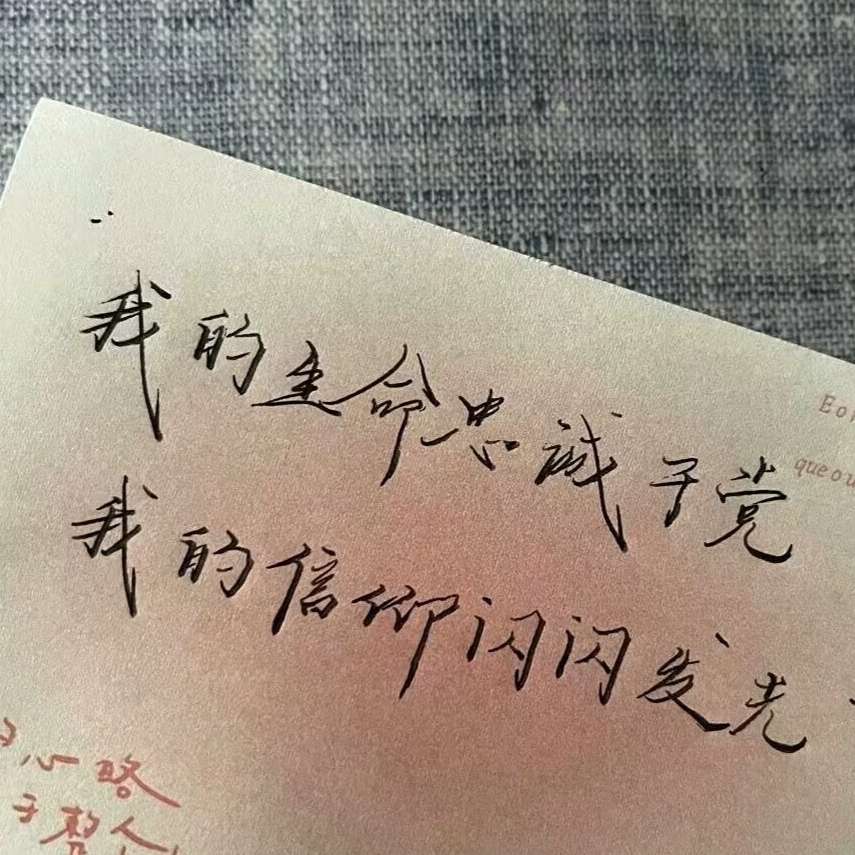 我的生命忠诚于党
我的信仰闪闪发光
心路
于整人